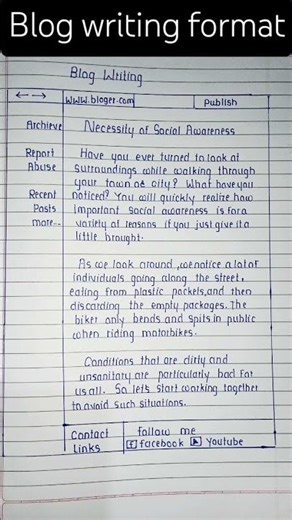 Blog writing format
Blog Writing
← →
www.bloger.com
Publish
Archieve
Necessity of Social Awareness
Report
Abuse
Recent
Posts
more...
Have you ever turned to look at
surroundings while walking through
your town or city? What have you
noticed? You will quickly realize how
important social awareness is for a
variety of reasons if you just give it a
little brought.
As we look around, we notice a lot of
individuals going along the street,
eating from plastic packets, and then
discarding the empty packages. The
biker only bends and spits in public
when riding motorbikes.
Conditions that are dirty and
unsanitary are particularly bad for
us all. So lets start working together
to avoid such situations.
Contact
Links
follow me
f facebook ▶ Youtube